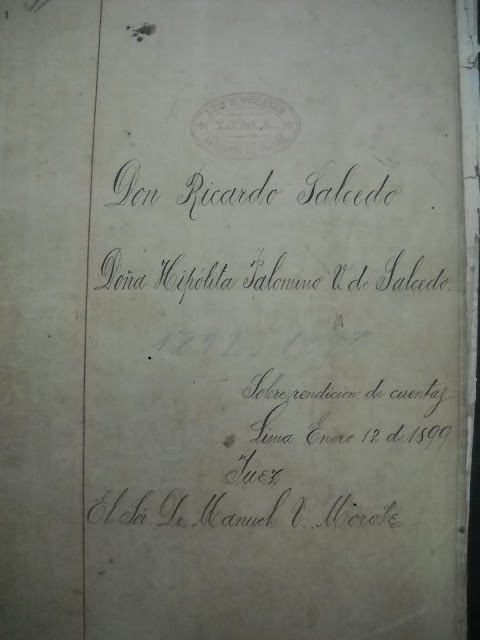 LIMA
Don Ricardo Salcedo
Doña Hipólita Palomino V. de Salcedo.
Sobre rendicion de cuentas
Lima Enero 12 de 1899
Juez
El Sor. Dr. Manuel V. Morote